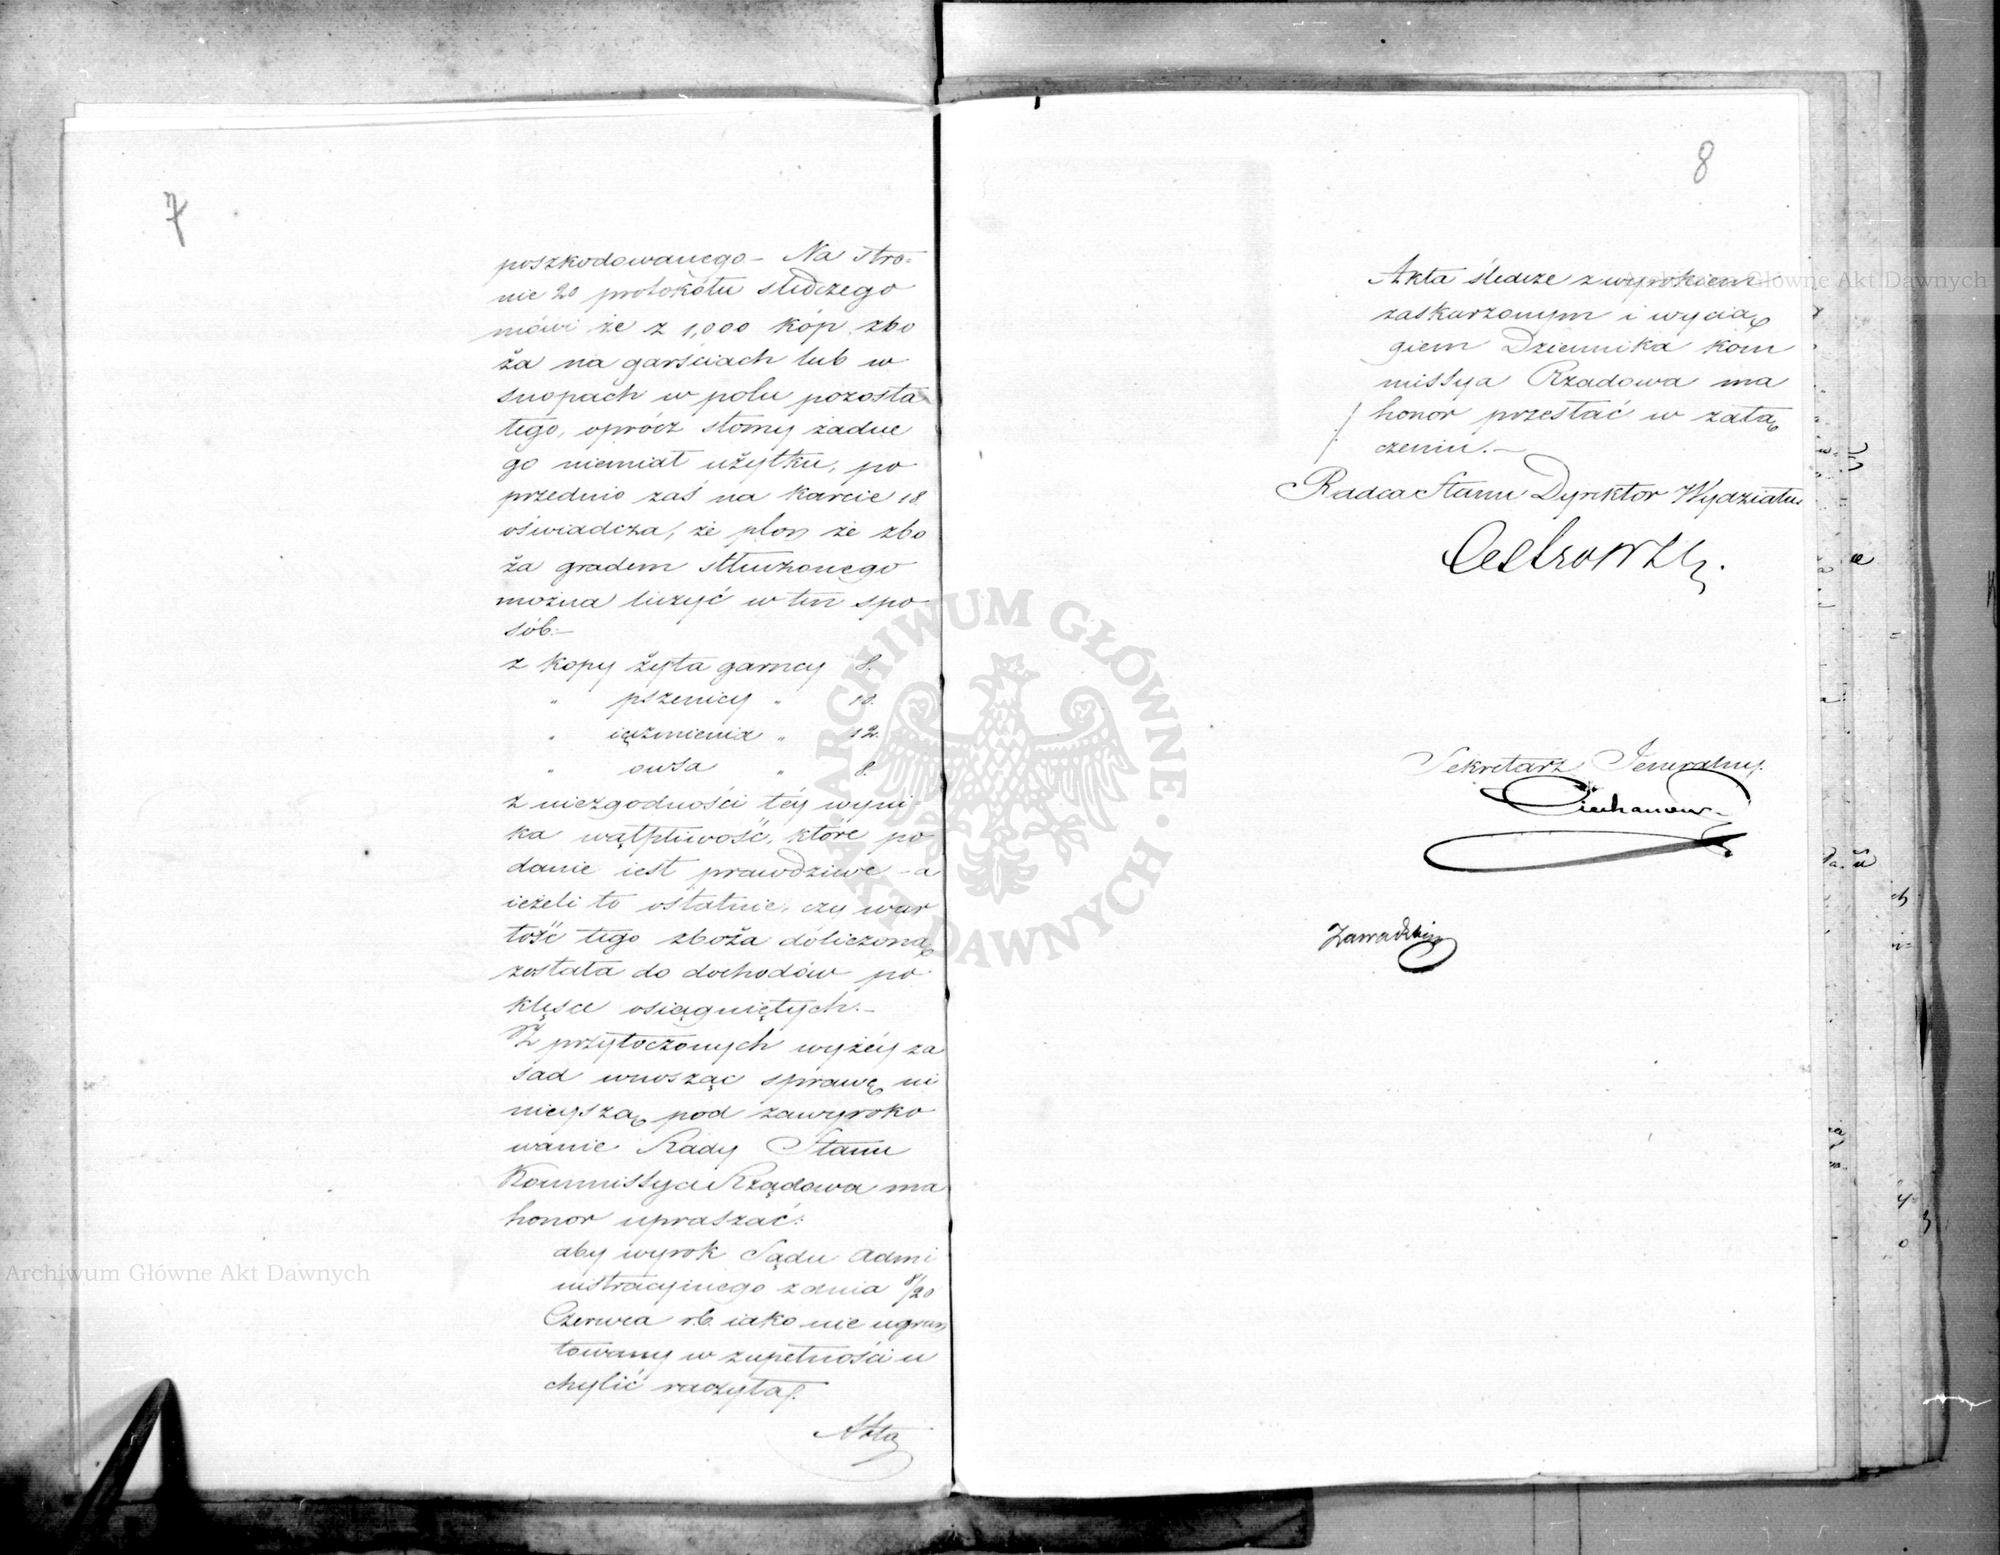 7
poszkodowanego – Na stro=
nie 20 protokółu śledczego
mówi że z 1,000 kóp zbo
ża na garściach lub w
snopach w polu pozosta
łego, oprócz słomy żadne
go niemiał użytku, po
przednio zaś na karcie 18
oświadcza, że plon ze zbo
ża gradem stłuczonego
można liczyć w ten spo
sób:–
z kopy żyta garncy 8.
" pszenicy " 10.
" ięczmienia " 12.
" owsa " 8.
z niezgodności téy wyni-
ka wątpliwość, które po
danie iest prawdziwe – a
ieżeli to ostatnie, czy war
tość tego zboża doliczoną
została do dochodów po
klęsce osiągniętych.–
Z przytoczonych wyżéy za
sad wnosząc sprawę ni
nieyszą pod zawyroko
wanie Rady Stanu
Kommissya Rządowa ma
honor upraszać:
aby wyrok Sądu Admi
nistracyjnego z dnia 8/20
Czerwca r.b. iako nie ugrun
towany w zupełności u
chylić raczyła.
Akta
8
Akta śledcze z wyrokiem
zaskarżonym i wycią
giem Dziennika Kom
missya Rządowa ma
honor przesłać w załą
czeniu.–
Radca Stanu Dyrektor Wydziału
Sekretarz Jeneralny.
Ciechanow
Zawadzki
ARCHIWUM GŁÓWNE AKT DAWNYCH
Archiwum Główne Akt Dawnych
Archiwum Główne Akt Dawnych